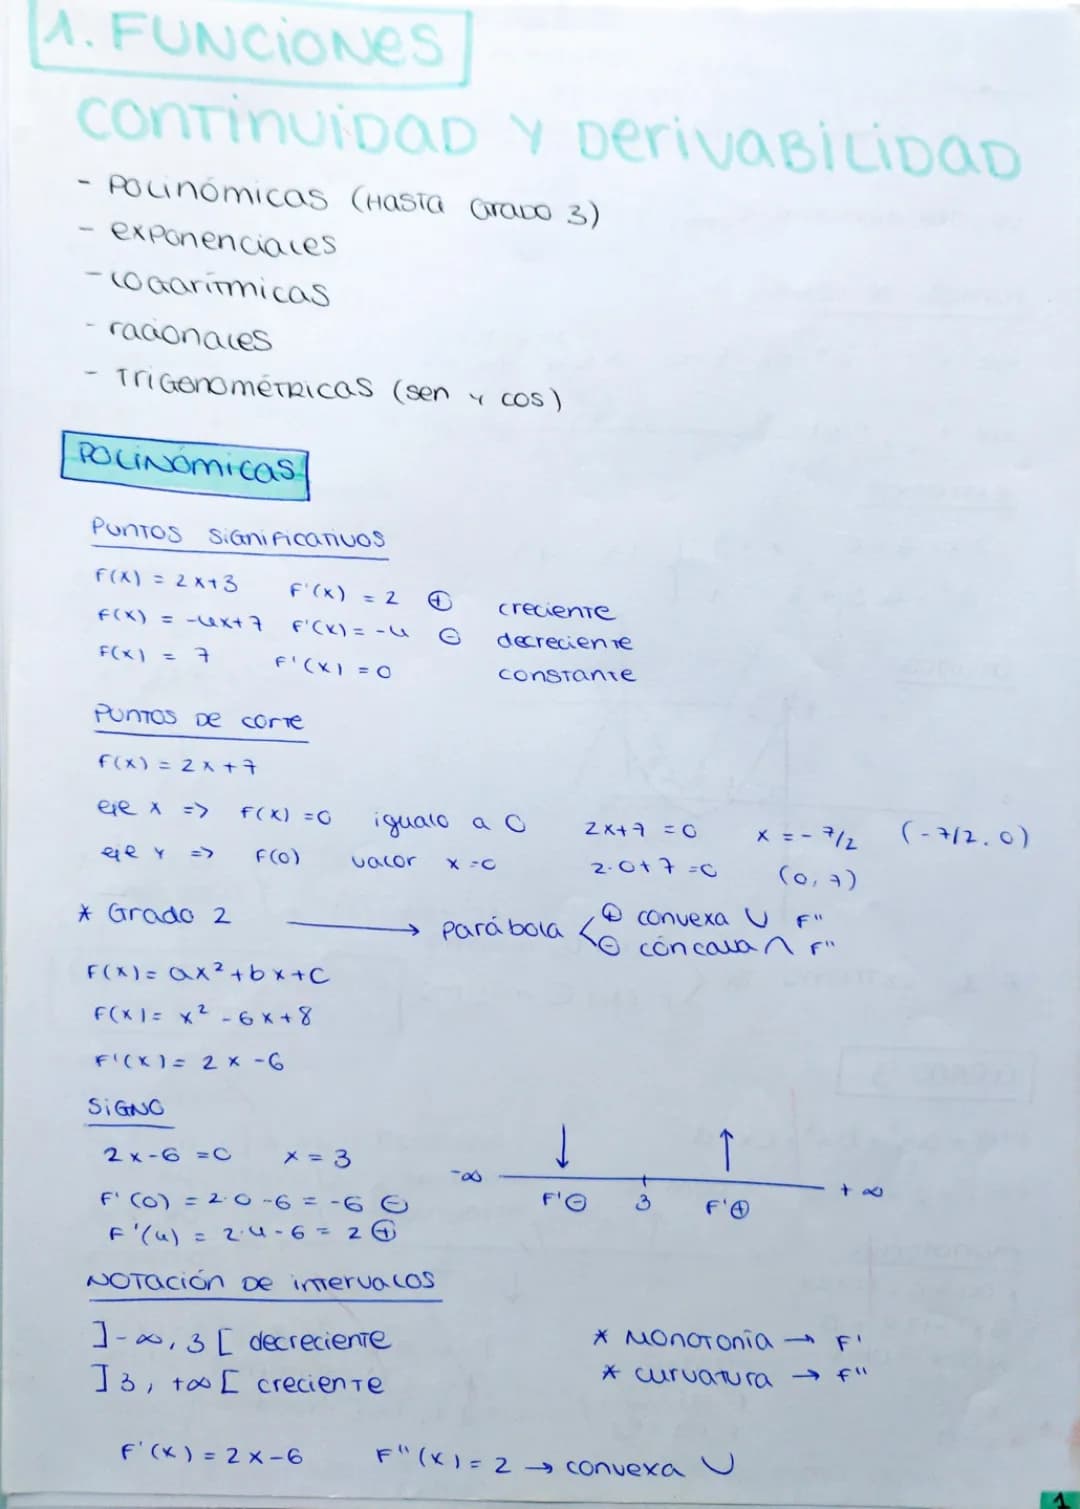 1. FUNCIONES
CONTINUIDAD Y DERIVABILIDAD
- POLINÓMICAS (HASTA GRADO 3)
- EXPONENCIALES
- LOGARÍTMICAS
- RACIONALES
- TRIGONOMÉTRICAS (sen y cos)
POLINÓMICAS
PUNTOS SIGNIFICATIVOS
F(x) = 2x+3 F'(x) = 2 ⊕ creciente
F(x) = -4x+7 F'(x) = -4 ⊖ decreciente
F(x) = 7 F'(x) = 0 constante
PUNTOS DE CORTE
F(x) = 2x+7
eje x => F(x) = 0 igualo a 0 2x+7 = 0 x = -7/2 (-7/2, 0)
eje y => F(0) valor x=0 2·0+7=0 (0, 7)
* Grado 2 → parábola < ⊕ convexa ∪ F''
⊖ cóncava ∩ F''
F(x) = ax²+bx+c
F(x) = x² - 6x+8
F'(x) = 2x - 6
SIGNO
2x-6 = 0 x = 3
↓ ↑
-∞ F'⊖ 3 F'⊕ +∞
F'(0) = 2·0-6 = -6 ⊖
F'(4) = 2·4-6 = 2 ⊕
NOTACIÓN DE INTERVALOS
]-∞, 3[ decreciente * Monotonía → F'
]3, +∞[ creciente * curvatura → F''
F'(x) = 2x-6 F''(x) = 2 → convexa ∪
1